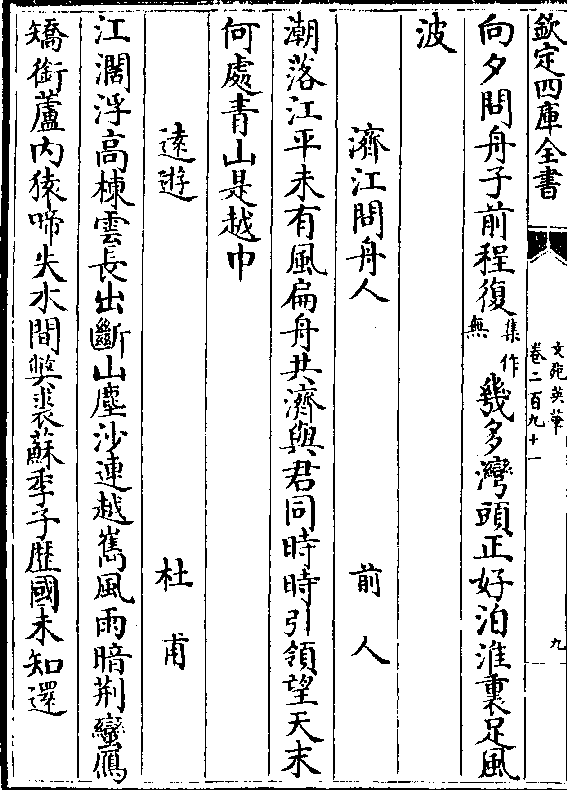 欽定四庫全書
文苑英華
卷二百九十一
九
向夕問舟子前程復集作無幾多灣頭正好泊淮裏足風
波
濟江問舟人 前人
潮落江平未有風扁舟共濟與君同時時引領望天末
何處青山是越中
遠遊 杜甫
江濶浮高棟雲長出斷山塵沙連越嶲風雨暗荆蠻鴈
矯銜蘆内猿啼失木間弊裘蘇季子歴國未知還